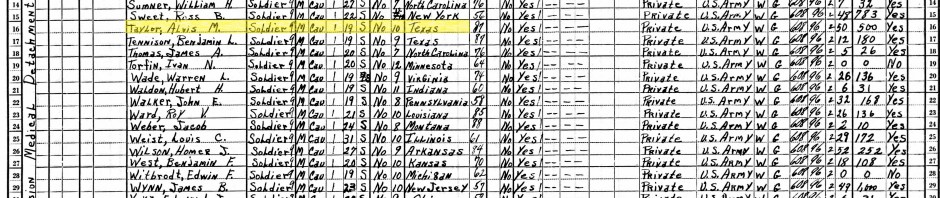 14 Sumner, William H. Soldier 9 M Cau 1 22 S No 7 North Carolina 96 No Yes 1 — — — Private U.S. Army W G 608 96 2 7 32 Yes
15 Sweet, Ross B. Soldier 9 M Cau 1 S No New York 56 No Yes 1 — — — Private U.S. Army W G 608 96 2 48 783 Yes 15
16 Taylor, Alvis M. Soldier 9 M Cau 1 19 S No 10 Texas No Yes 1 — — — Private U.S. Army W G 608 96 2 50 500 Yes 16
17 Tennison, Benjamin L. Soldier 9 M Cau 1 19 S No 9 Texas No Yes 1 — — — Private U.S. Army W G 608 96 2 12 180 Yes 17
18 Thomas, James A. Soldier 9 M Cau 1 19 S No 7 North Carolina 96 No Yes 1 — — — Private U.S. Army W G 608 96 2 5 26 Yes 18
19 Torfin, Ivan N. Soldier 9 M Cau 1 20 S No 12 Minnesota 64 No Yes 1 — — — Private U.S. Army W G 608 96 2 0 0 No 19
20 Wade, Warren L. Soldier 9 M Cau 1 19 S No 9 Virginia 74 No Yes 1 — — — Private U.S. Army W G 608 96 2 26 136 Yes 20
21 Waldon, Hubert H. Soldier 9 M Cau 1 19 S No 11 Indiana 60 No Yes 1 — — — Private U.S. Army W G 608 96 2 6 31 Yes 21
22 Walker, John E. Soldier 9 M Cau 1 19 S No 8 Pennsylvania 58 No Yes 1 — — — Private U.S. Army W G 608 96 2 32 168 Yes 22
23 Ward, Roy V. Soldier 9 M Cau 1 21 S No 10 Louisiana 85 No Yes 1 — — — Private U.S. Army W G 608 96 2 26 136 Yes 23
24 Weber, Jacob Soldier 9 M Cau 1 24 S No 8 Montana No Yes 1 — — — Private U.S. Army W G 608 96 2 2 10 Yes 24
25 Weist, Louis C. Soldier 9 M Cau 1 S No 10 Illinois 61 No Yes 1 — — — Private U.S. Army W G 608 96 2 172 Yes 25
26 Wilson, Homer J. Soldier 9 M Cau 1 27 S No 9 Arkansas 84 No Yes 1 — — — Private U.S. Army W G 608 96 2 52 252 Yes 26
27 West, Benjamin F. Soldier 9 M Cau 1 20 S No 10 Kansas 70 No Yes 1 — — — Private U.S. Army W G 608 96 2 18 108 Yes 27
28 Witbrodt, Edwin F. Soldier 9 M Cau 1 S No 10 Michigan 62 No Yes 1 — — — Private U.S. Army W G 608 96 2 0 0 No 28
29 Wynn, James B. Soldier 9 M Cau 1 23 S No 10 New Jersey 57 No Yes 1 — — — Private U.S. Army W G 608 96 2 49 1,000 Yes 29
Medical Detachment